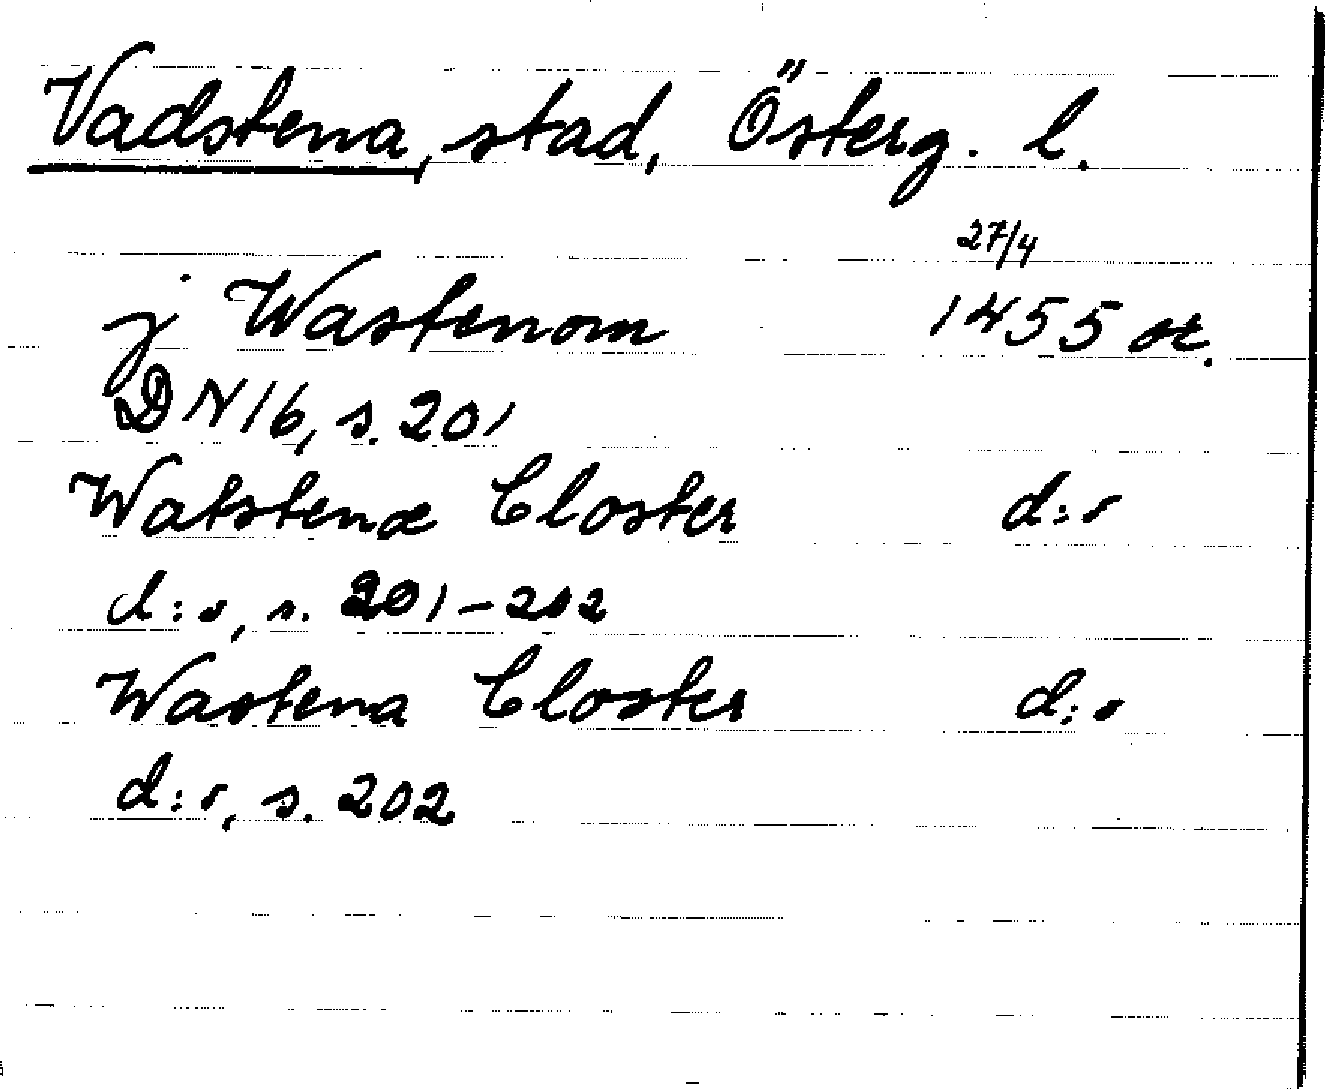 Vadstena, stad, Österg. l.
27/4
j Wastenom 1455 or.
DN 16, s. 201
Watstenæ Closter d:o
d:o, s. 201-202
Wastena Closter d:o
d:o, s. 202